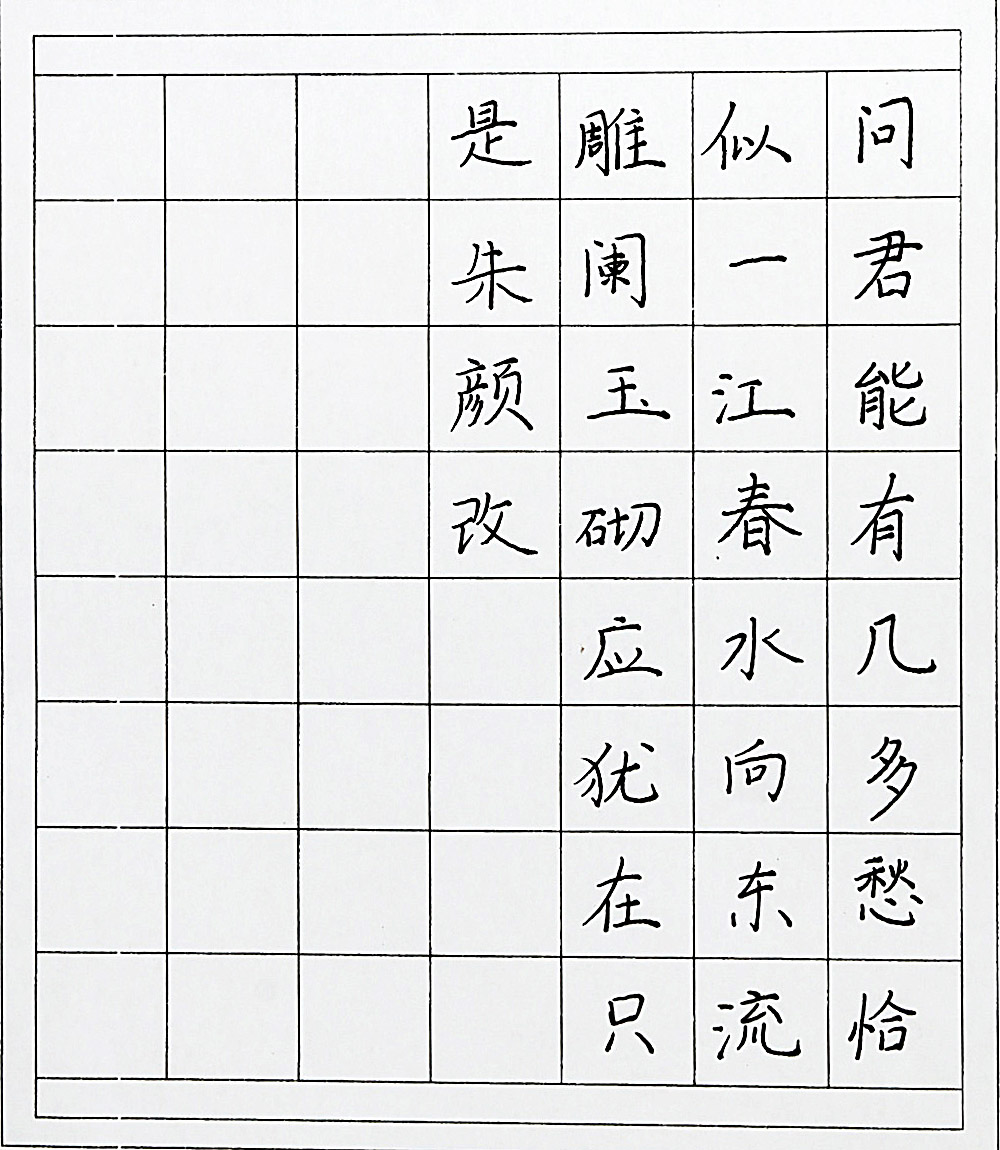 问君能有几多愁恰
似一江春水向东流
雕阑玉砌应犹在只
是朱颜改